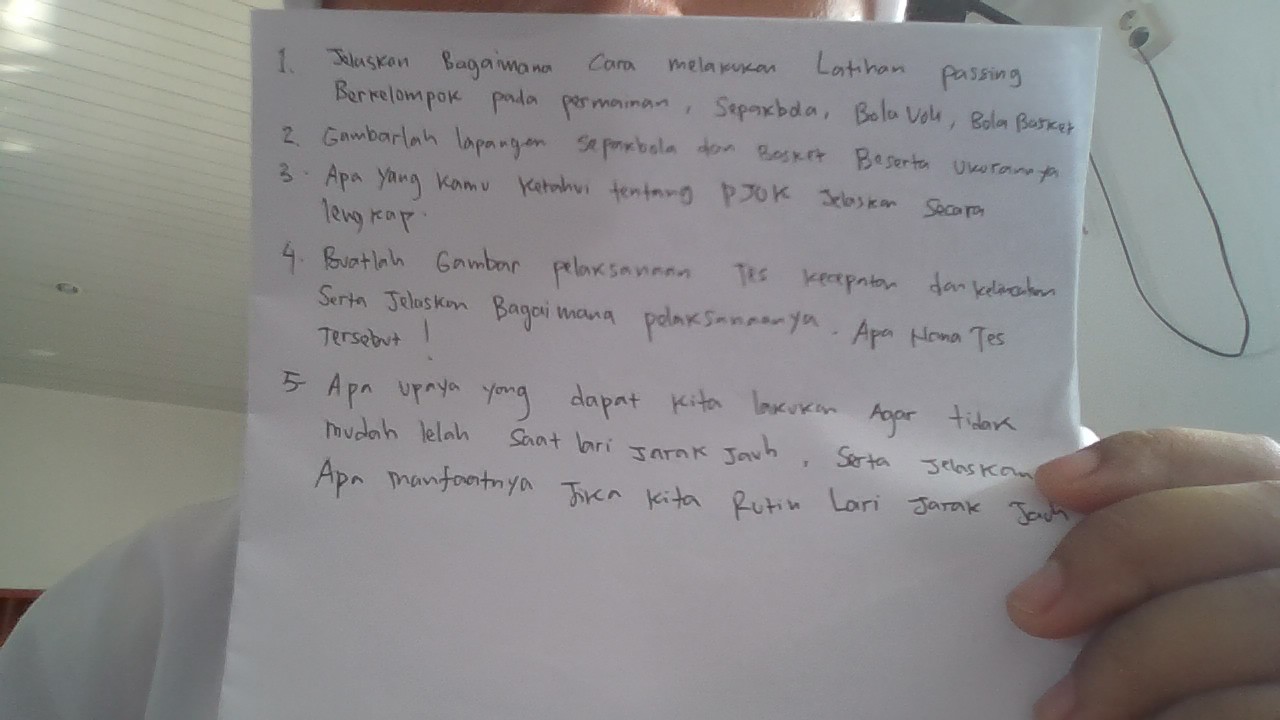 1. Jelaskan Bagaimana Cara melakukan Latihan passing
Berkelompok pada permainan, Sepakbola, Bola Voli, Bola Basket
2. Gambarlah lapangan sepakbola dan Basket Beserta ukurannya
3. Apa yang kamu ketahui tentang PJOK Jelaskan Secara
lengkap.
4. Buatlah Gambar pelaksanaan Tes kecepatan dan kelincahan
Serta Jelaskan Bagaimana pelaksanaanya. Apa Nama Tes
Tersebut!
5 Apa upaya yang dapat kita lakukan Agar tidak
mudah lelah saat lari jarak jauh, Serta jelaskan
Apa manfaatnya Jika kita Rutin Lari Jarak Jauh